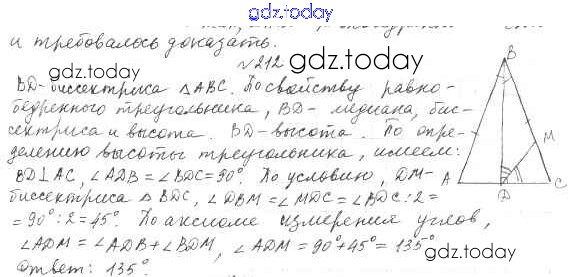 gdz.today
и требовалось доказать.
gdz.today
№212
BD-биссектриса △ABC. По свойству равно-
бедренного треугольника, BD- медиана, бис-
сектриса и высота. BD-высота. По опре-
делению высоты треугольника, имеем:
BD⊥AC, ∠ADB=∠BDC=90°. По условию, DM-
биссектриса △BDC, ∠DBM=∠MDC=∠BDC:2=
=90°:2=45°. По аксиоме измерения углов,
∠ADM=∠ADB+∠BDM, ∠ADM=90°+45°=135°.
Ответ: 135°.
gdz.today
B
M
A
D
C
gdz.today
gdz.today